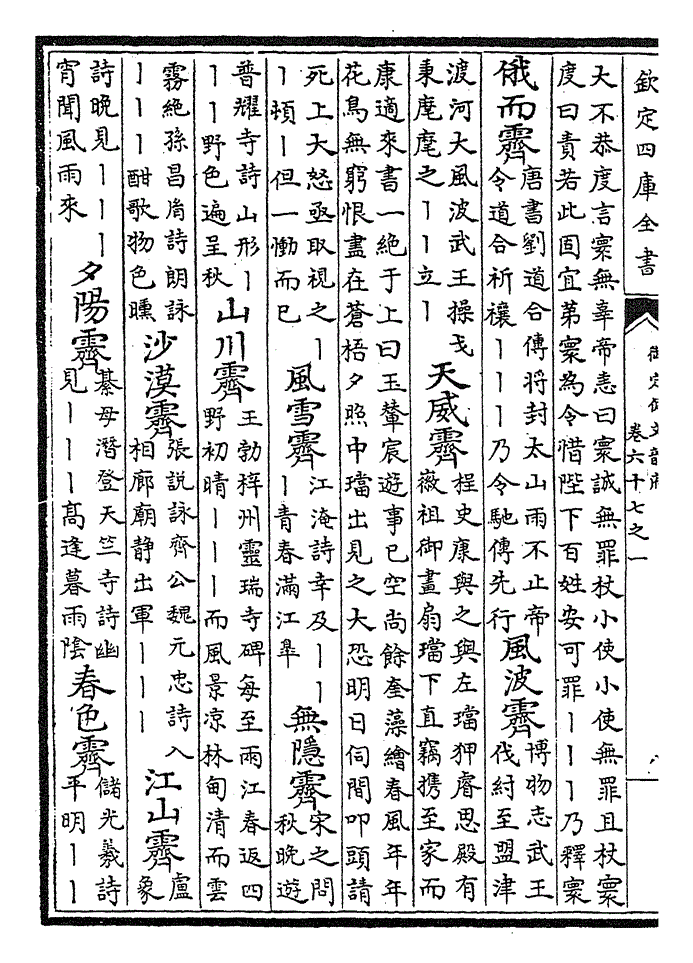 欽定四庫全書
御定佩文韻府
卷六十七之一
八
大不恭度言寀無辜帝恚曰寀誠無罪杖小使小使無罪且杖寀
度曰責若此固宜第寀為令惜陛下百姓安可罪丨丨丨乃釋寀
俄而霽
唐書劉道合傳將封太山雨不止帝
令道合祈禳丨丨丨乃令馳傳先行
風波霽
博物志武王
伐紂至盟津
渡河大風波武王操戈
秉麾麾之丨丨立丨
天威霽
桯史康與之與左璫狎睿思殿有
徽祖御畫扇璫下直竊携至家而
康適來書一絶于上曰玉輦宸遊事已空尚餘奎藻繪春風年年
花鳥無窮恨盡在蒼梧夕照中璫出見之大恐明日伺間叩頭請
死上大怒亟取視之丨
丨頓丨但一慟而已
風雪霽
江淹詩幸及丨丨
丨青春滿江臯
無隱霽
宋之問
秋晚遊
普耀寺詩山形丨
丨丨野色遍呈秋
山川霽
王勃梓州靈瑞寺碑每至雨江春返四
野初晴丨丨丨而風景凉林甸清而雲
霧絶孫昌胤詩朗詠
丨丨丨酣歌物色曛
沙漠霽
張說詠齊公魏元忠詩入
相廊廟静出軍丨丨丨
江山霽
盧
象
詩晚見丨丨丨
宵聞風雨來
夕陽霽
綦母潜登天竺寺詩幽
見丨丨丨高逢暮雨陰
春色霽
儲光羲詩
平明丨丨